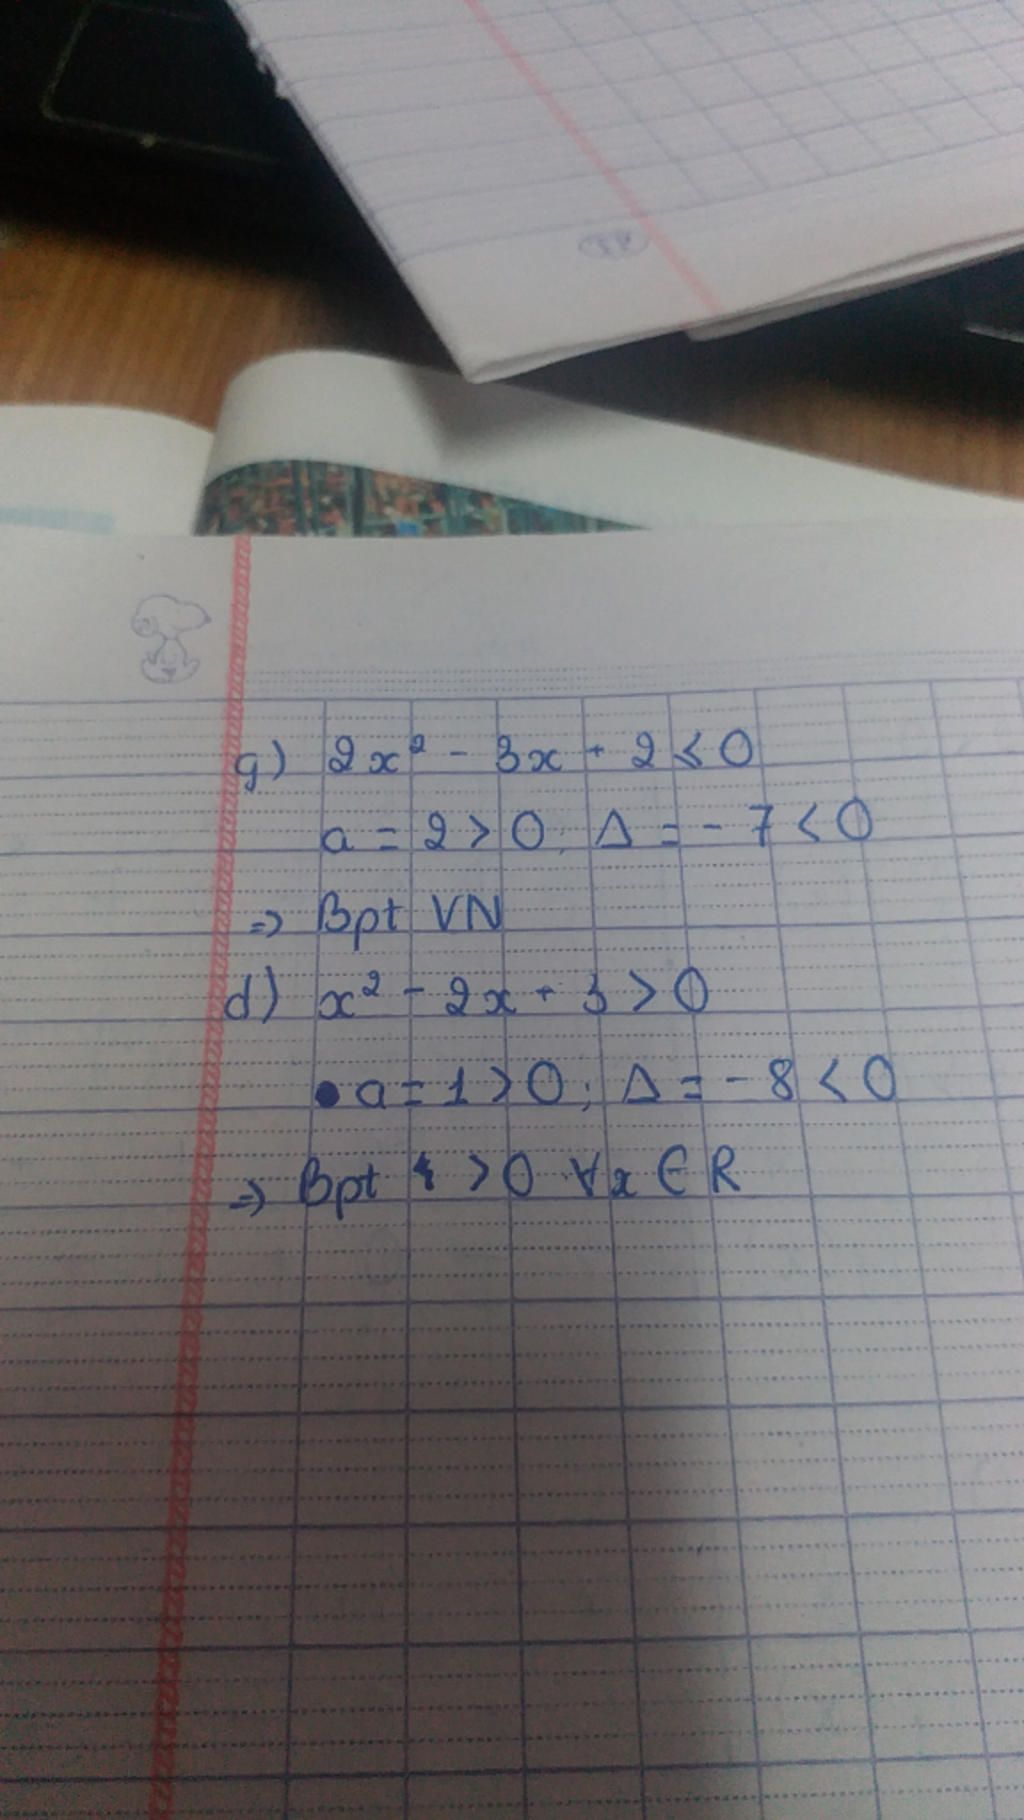 g) 2x² - 3x + 2 < 0
a = 2 > 0; Δ = - 7 < 0
=> Bpt VN
d) x² - 2x + 3 > 0
• a = 1 > 0; Δ = - 8 < 0
=> Bpt > 0 ∀x ∈ R